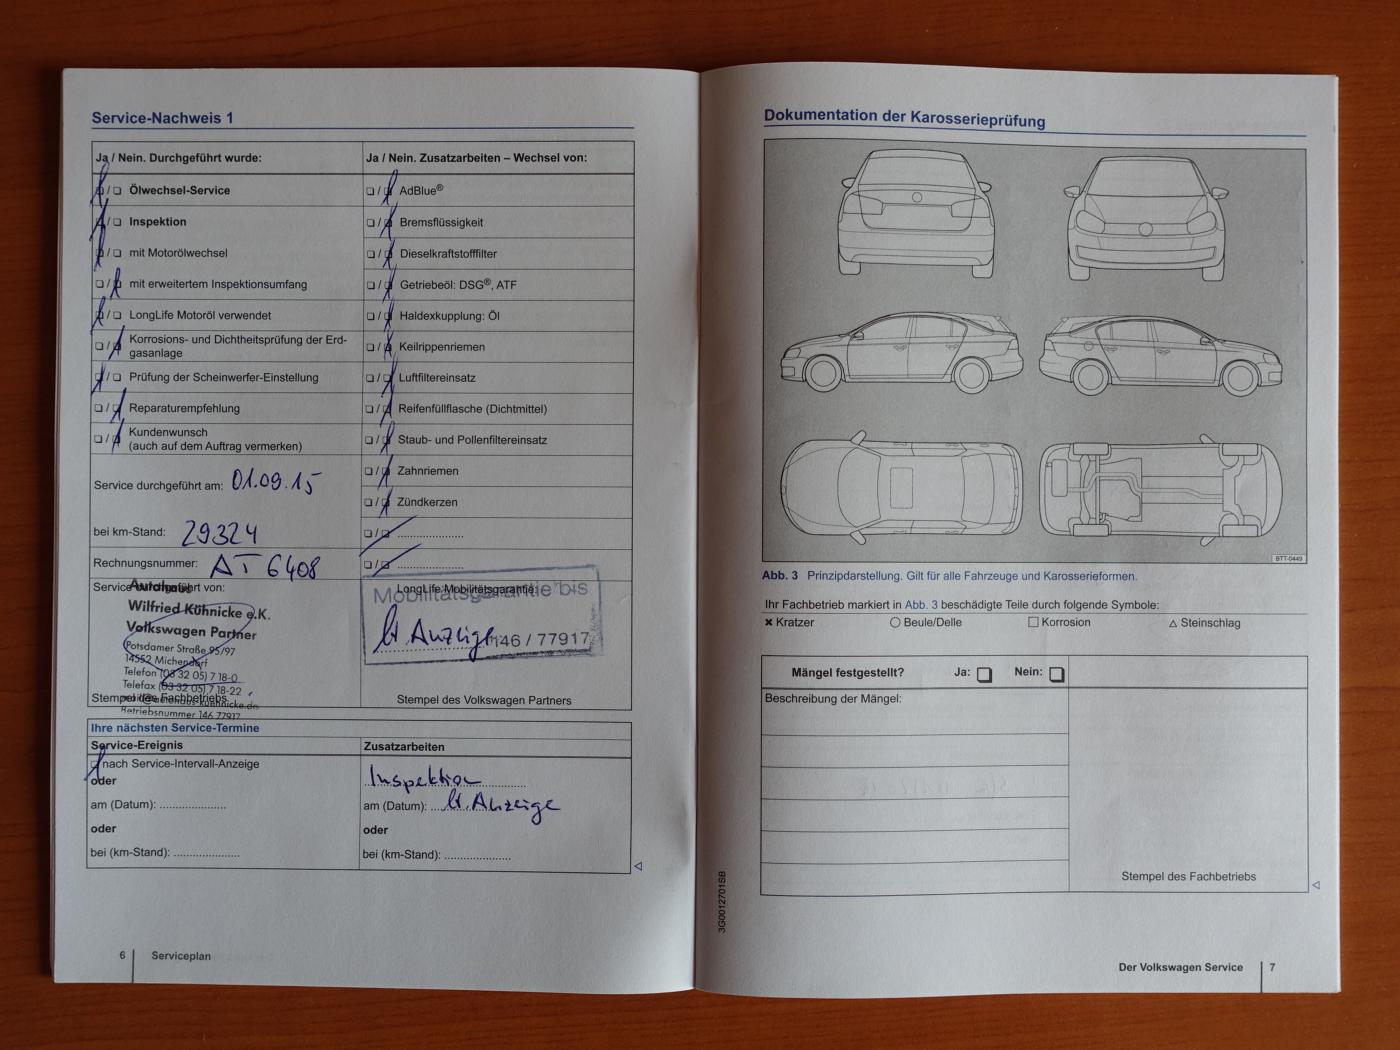 Service-Nachweis 1
Ja / Nein. Durchgeführt wurde:
Ölwechsel-Service
Inspektion
mit Motorölwechsel
mit erweitertem Inspektionsumfang
LongLife Motoröl verwendet
Korrosions- und Dichtheitsprüfung der Erd-
gasanlage
Prüfung der Scheinwerfer-Einstellung
Reparaturempfehlung
Kundenwunsch
(auch auf dem Auftrag vermerken)
Service durchgeführt am: 01.09.15
bei km-Stand: 29324
Rechnungsnummer: AT 6408
Service durchgeführt von:
Autohaus
Wilfried Kühnicke e.K.
Volkswagen Partner
Potsdamer Straße 95/97
14552 Michendorf
Telefon (03 32 05) 7 18-0
Telefax (03 32 05) 7 18-22
Betriebsnummer 146 77917
Stempel des Fachbetriebs
Ja / Nein. Zusatzarbeiten – Wechsel von:
AdBlue®
Bremsflüssigkeit
Dieselkraftstofffilter
Getriebeöl: DSG®, ATF
Haldexkupplung: Öl
Keilrippenriemen
Luftfiltereinsatz
Reifenfüllflasche (Dichtmittel)
Staub- und Pollenfiltereinsatz
Zahnriemen
Zündkerzen
LongLife Mobilitätsgarantie:
Mobilitätsgarantie bis
lt. Anzeige
146 / 77917
Stempel des Volkswagen Partners
Ihre nächsten Service-Termine
Service-Ereignis
nach Service-Intervall-Anzeige
oder
am (Datum): ......................
oder
bei (km-Stand): ......................
Zusatzarbeiten
Inspektion
am (Datum): lt. Anzeige
oder
bei (km-Stand): ......................
6 Serviceplan
Dokumentation der Karosserieprüfung
BTT-0449
Abb. 3 Prinzipdarstellung. Gilt für alle Fahrzeuge und Karosserieformen.
Ihr Fachbetrieb markiert in Abb. 3 beschädigte Teile durch folgende Symbole:
✖ Kratzer ○ Beule/Delle □ Korrosion △ Steinschlag
Mängel festgestellt? Ja: ❑ Nein: ❑
Beschreibung der Mängel:
Stempel des Fachbetriebs
3G0012701SB
Der Volkswagen Service 7